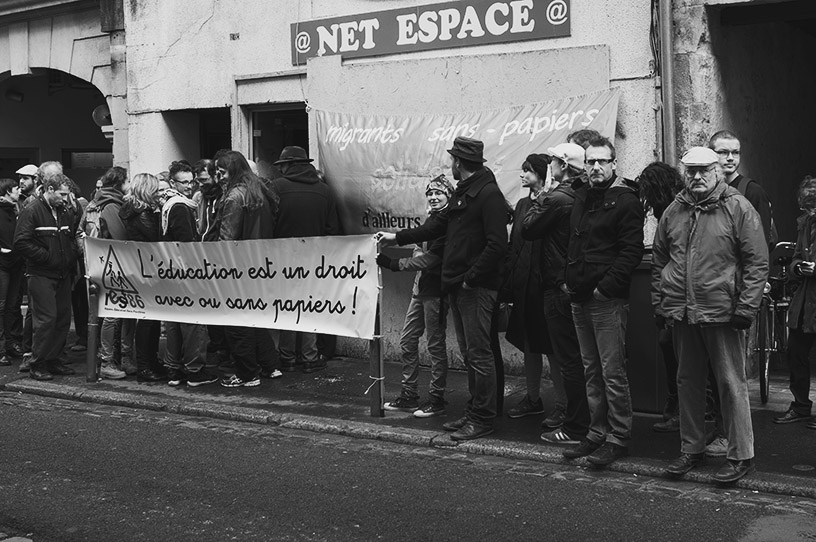 @ NET ESPACE @
migrants sans-papiers
d'ailleurs
L'éducation est un droit
avec ou sans papiers !
resf86